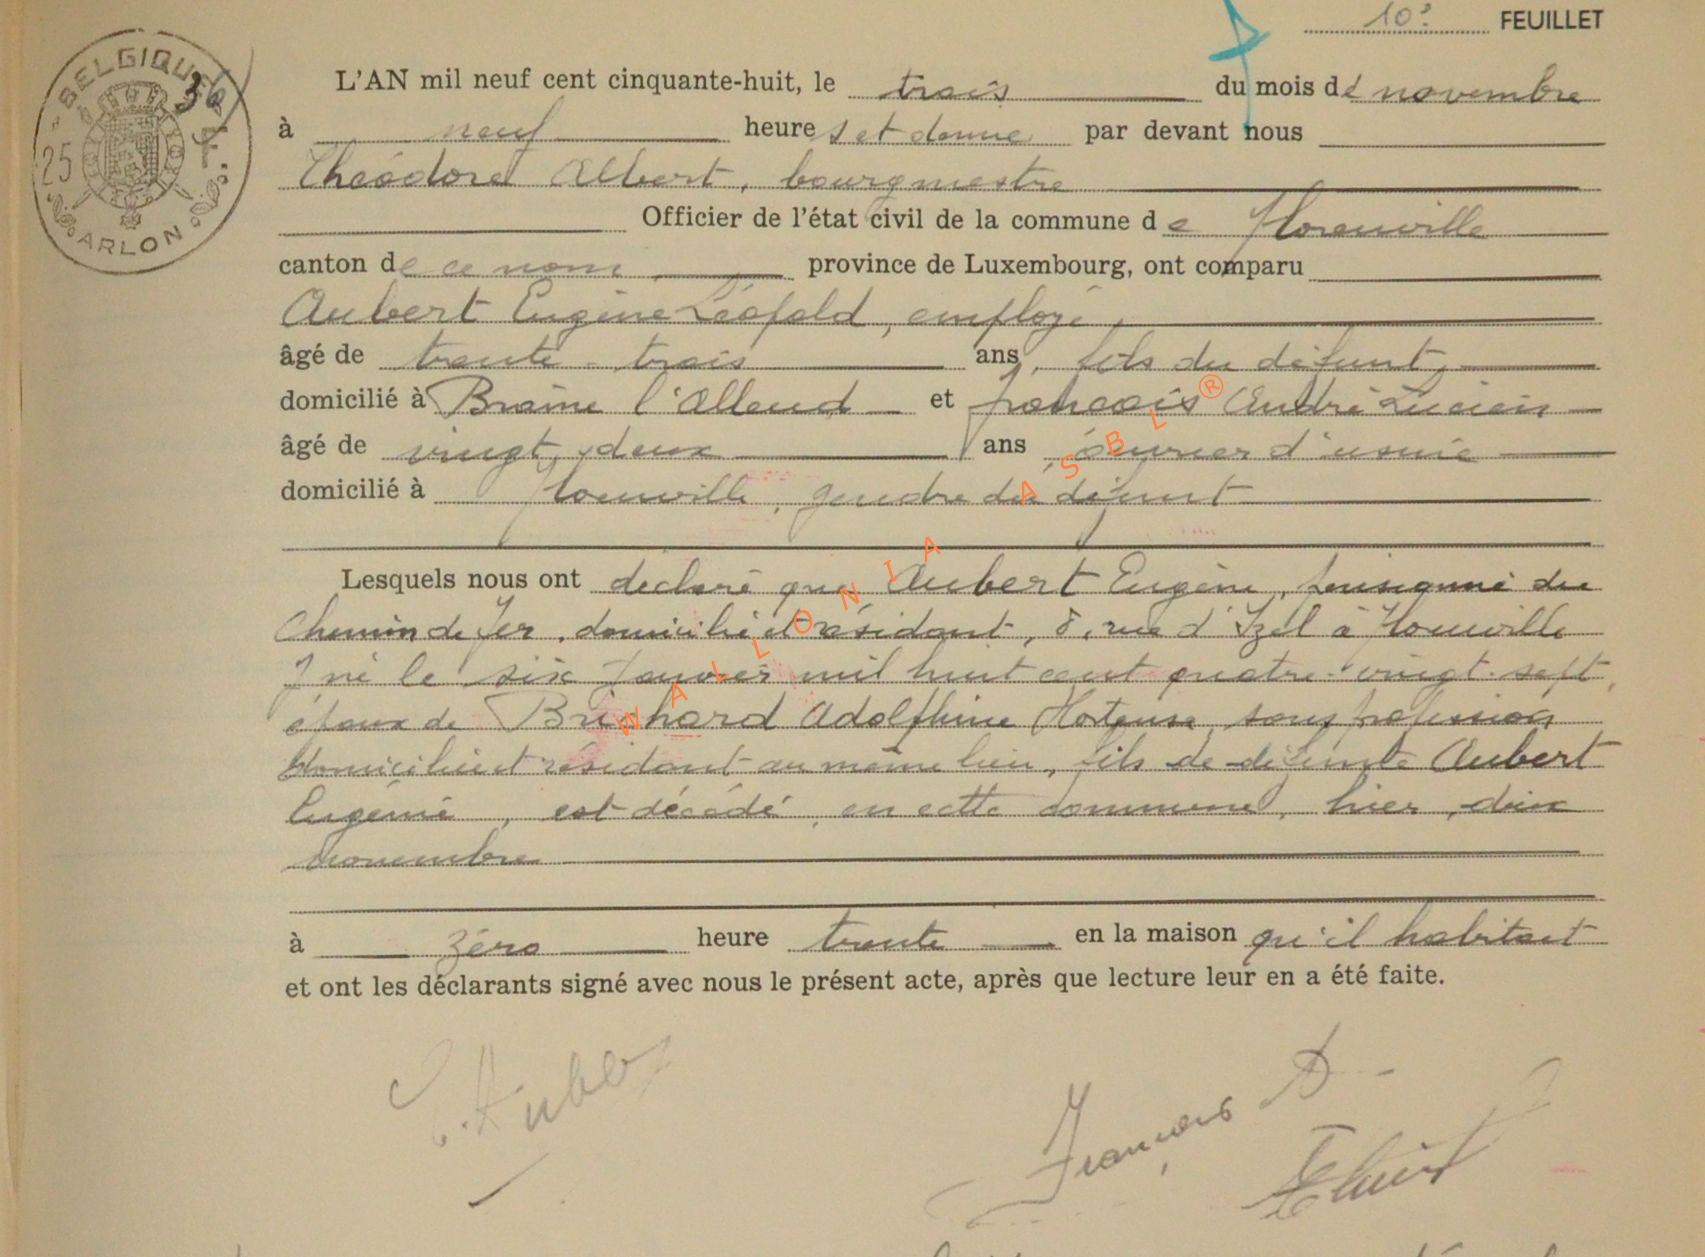 10e FEUILLET
BELGIQUE
25
ARLON
36
L'AN mil neuf cent cinquante-huit, le trois du mois de novembre
à neuf heures et demie par devant nous
Théodore Albert, bourgmestre
Officier de l'état civil de la commune de Florenville
canton de ce nom province de Luxembourg, ont comparu
Aubert Eugène Léopold, employé,
âgé de trente-trois ans, fils du défunt,
domicilié à Braine l'Alleud et François André Lucien
âgé de vingt-deux ans, ouvrier d'usine
domicilié à Florenville, gendre du défunt
Lesquels nous ont déclaré que Aubert Eugène, pensionné du
Chemin de fer, domicilié et résidant, 8, rue d'Izel à Florenville
y né le six Janvier mil huit cent quatre-vingt-sept,
époux de Adolphine Hortense, sans profession
domiciliée et résidant au même lieu, fils de défunte Aubert
Eugénie, est décédé, en cette commune, hier, deux
novembre
à zéro heure trente en la maison qu'il habitait
et ont les déclarants signé avec nous le présent acte, après que lecture leur en a été faite.
E. Aubert
François A
WALLONIA ASBL ®